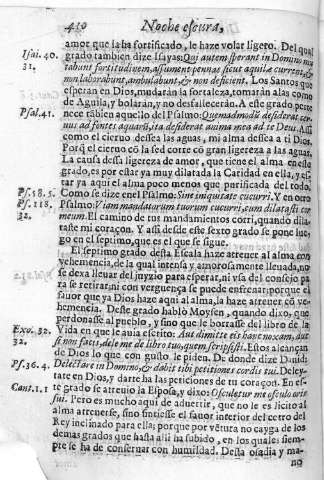 410 Noche escura,
amor que la ha fortificado, le haze volar ligero. Del qual
Isai. 40. grado tambien dize Isayas: Qui autem sperant in Domino mu
31. tabunt fortitudinem, assument pennas sicut aquilæ current, &
non laborabunt, ambulabunt, & non deficient. Los Santos que
esperan en Dios, mudarán la fortaleza, tomarán alas como
de Aguila, y bolarán, y no desfallecerán. A este grado perte
Psal. 41. nece tābien aquello del Psalmo: Quemadmodū desiderat cer-
uus ad fontes aquarū, ita desiderat anima mea ad te Deus. Assi
como el ciervo dessea las aguas, mi alma dessea a ti Dios.
Porq̃ el ciervo cō la sed corre cō gran ligereza a las aguas.
La causa dessa ligereza de amor, que tiene el alma en este
grado, es por estar ya muy dilatada la Caridad en ella, y es-
tar ya aqui el alma poco menos que purificada del todo.
Ps. 58. 5. Como se dize en el Psalmo: Sine iniquitate cucurri. Y en otro
Ps. 118. Psalmo: Viam mandatorum tuorum cucurri, cum dilatasti cor
32. meum. El camino de tus mandamientos corri, quando dila-
taste mi coraçon. Y assi desde este sexto grado se pone lue-
go en el septimo, que es el que se sigue.
El septimo grado desta Escala haze atreuer al alma con
vehemencia, de la qual intensa y amorosamente lleuada, no
se dexa lleuar del juyzio para esperar, ni vsa del consejo pa
ra se retirar, ni con verguença se puede enfrenar: porque el
fauor que ya Dios haze aqui al alma, la haze atreuer cō ve-
hemencia. Deste grado habló Moysen, quando dixo, que
perdonasse al pueblo, y sino que le borrasse del libro de la
Exo. 32. Vida en que le auia escrito: Aut dimitte eis hanc noxam, aut
32. si non facis, dele me de libro tuo, quem scripsisti. Estos alcançan
de Dios lo que con gusto le piden. De donde dize Dauid:
Ps. 36. 4. Delectare in Domino, & dabit tibi petitiones cordis tui. Deley-
tate en Dios, y darte ha las peticiones de tu coraçon. En es-
Cant. 1. 1 te grado se atreuio la Esposa, y dixo: Osculetur me osculo oris
sui. Pero es mucho aqui de aduertir, que no le es licito al
alma atreuerse, sino sintiesse el fauor interior del cetro del
Rey inclinado para ella; porque por vētura no cayga de los
demas grados que hasta alli ha subido, en los quales siem-
pre se ha de conservar con humildad. Desta osadia y ma-
no